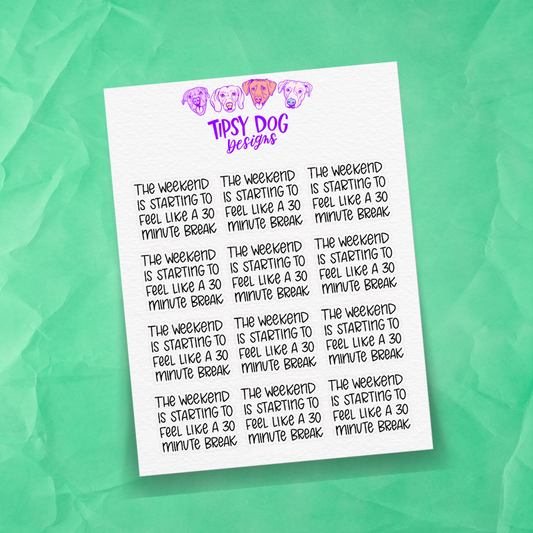 TIPSY DOG
Designs
THE WEEKEND
IS STARTING TO
FEEL LIKE A 30
MINUTE BREAK
THE WEEKEND
IS STARTING TO
FEEL LIKE A 30
MINUTE BREAK
THE WEEKEND
IS STARTING TO
FEEL LIKE A 30
MINUTE BREAK
THE WEEKEND
IS STARTING TO
FEEL LIKE A 30
MINUTE BREAK
THE WEEKEND
IS STARTING TO
FEEL LIKE A 30
MINUTE BREAK
THE WEEKEND
IS STARTING TO
FEEL LIKE A 30
MINUTE BREAK
THE WEEKEND
IS STARTING TO
FEEL LIKE A 30
MINUTE BREAK
THE WEEKEND
IS STARTING TO
FEEL LIKE A 30
MINUTE BREAK
THE WEEKEND
IS STARTING TO
FEEL LIKE A 30
MINUTE BREAK
THE WEEKEND
IS STARTING TO
FEEL LIKE A 30
MINUTE BREAK
THE WEEKEND
IS STARTING TO
FEEL LIKE A 30
MINUTE BREAK
THE WEEKEND
IS STARTING TO
FEEL LIKE A 30
MINUTE BREAK